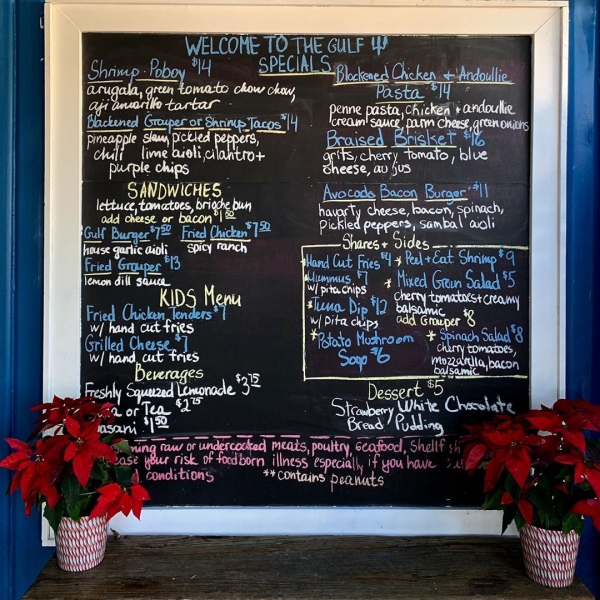 WELCOME TO THE GULF
SPECIALS
Shrimp Poboy $14
arugala, green tomato chow chow,
aji amarillo tartar
Blackened Grouper or Shrimp Tacos $14
pineapple slaw, pickled peppers,
chili lime aioli, cilantro +
purple chips
SANDWICHES
lettuce, tomatoes, brioche bun
add cheese or bacon $1.50
Gulf Burger $7.50 Fried Chicken $7.50
house garlic aioli spicy ranch
Fried Grouper $13
lemon dill sauce
KIDS Menu
Fried Chicken Tenders $7
w/ hand cut fries
Grilled Cheese $7
w/ hand cut fries
Beverages
Freshly Squeezed Lemonade $3.75
or Tea $2.75
asani $1.50
Blackened Chicken + Andoullie
Pasta $14
penne pasta, chicken + andouille
cream sauce, parm cheese, green onions
Braised Brisket $16
grits, cherry tomato, blue
cheese, au jus
Avocado Bacon Burger $11
havarty cheese, bacon, spinach,
pickled peppers, sambal aioli
Shares + Sides
Hand Cut Fries $4
Hummus $7
w/ pita chips
*Tuna Dip $12
w/ pita chips
*Potato Mushroom
Soap $6
* Peel + Eat Shrimp $9
* Mixed Green Salad $5
cherry tomatoes + creamy
balsamic
add Grouper $8
* Spinach Salad $8
cherry tomatoes,
mozzarella, bacon
balsamic
Dessert $5
Strawberry White Chocolate
Bread Pudding
ming raw or undercooked meats, poultry, seafood, shellf sh
ease your risk of foodborn illness especially if you have
conditions **contains peanuts